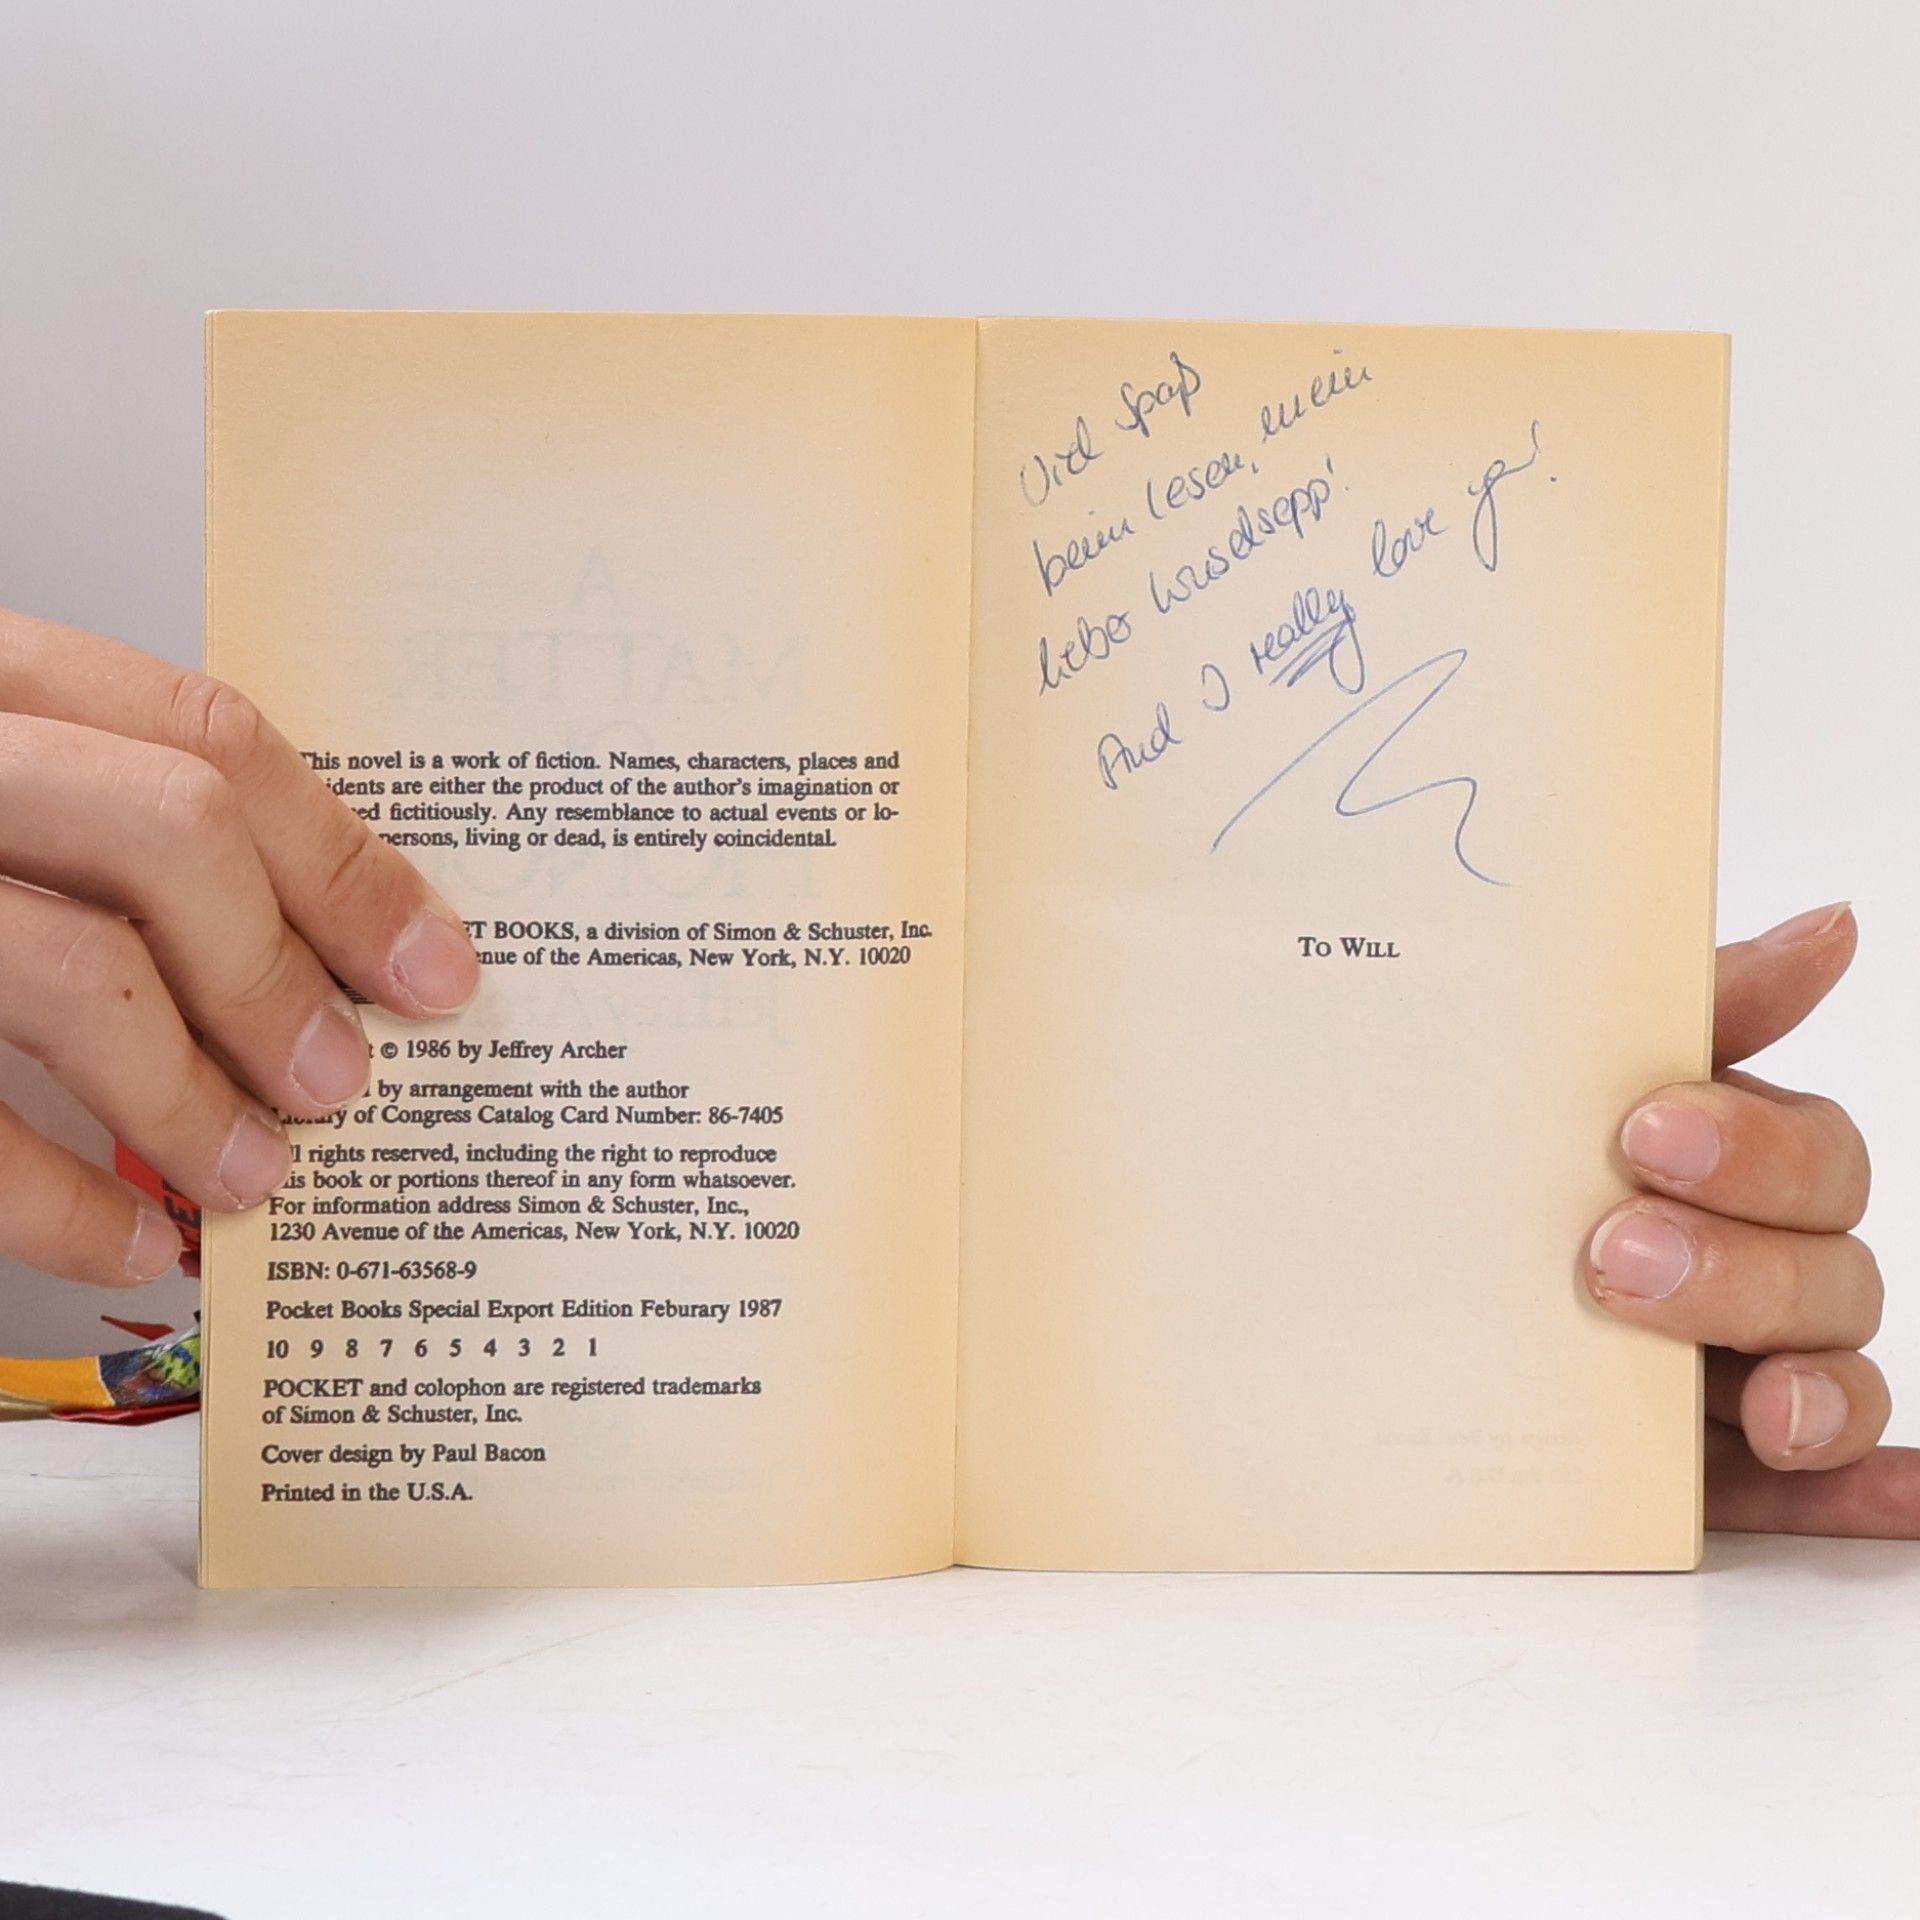 This novel is a work of fiction. Names, characters, places and
idents are either the product of the author's imagination or
ed fictitiously. Any resemblance to actual events or lo-
persons, living or dead, is entirely coincidental.
ET BOOKS, a division of Simon & Schuster, Inc.
enue of the Americas, New York, N.Y. 10020
t © 1986 by Jeffrey Archer
by arrangement with the author
Library of Congress Catalog Card Number: 86-7405
ll rights reserved, including the right to reproduce
is book or portions thereof in any form whatsoever.
For information address Simon & Schuster, Inc.,
1230 Avenue of the Americas, New York, N.Y. 10020
ISBN: 0-671-63568-9
Pocket Books Special Export Edition Feburary 1987
10 9 8 7 6 5 4 3 2 1
POCKET and colophon are registered trademarks
of Simon & Schuster, Inc.
Cover design by Paul Bacon
Printed in the U.S.A.
Viel Spaß
beim lesen, mein
lieber Wuselsepp!
And I really love you!
TO WILL